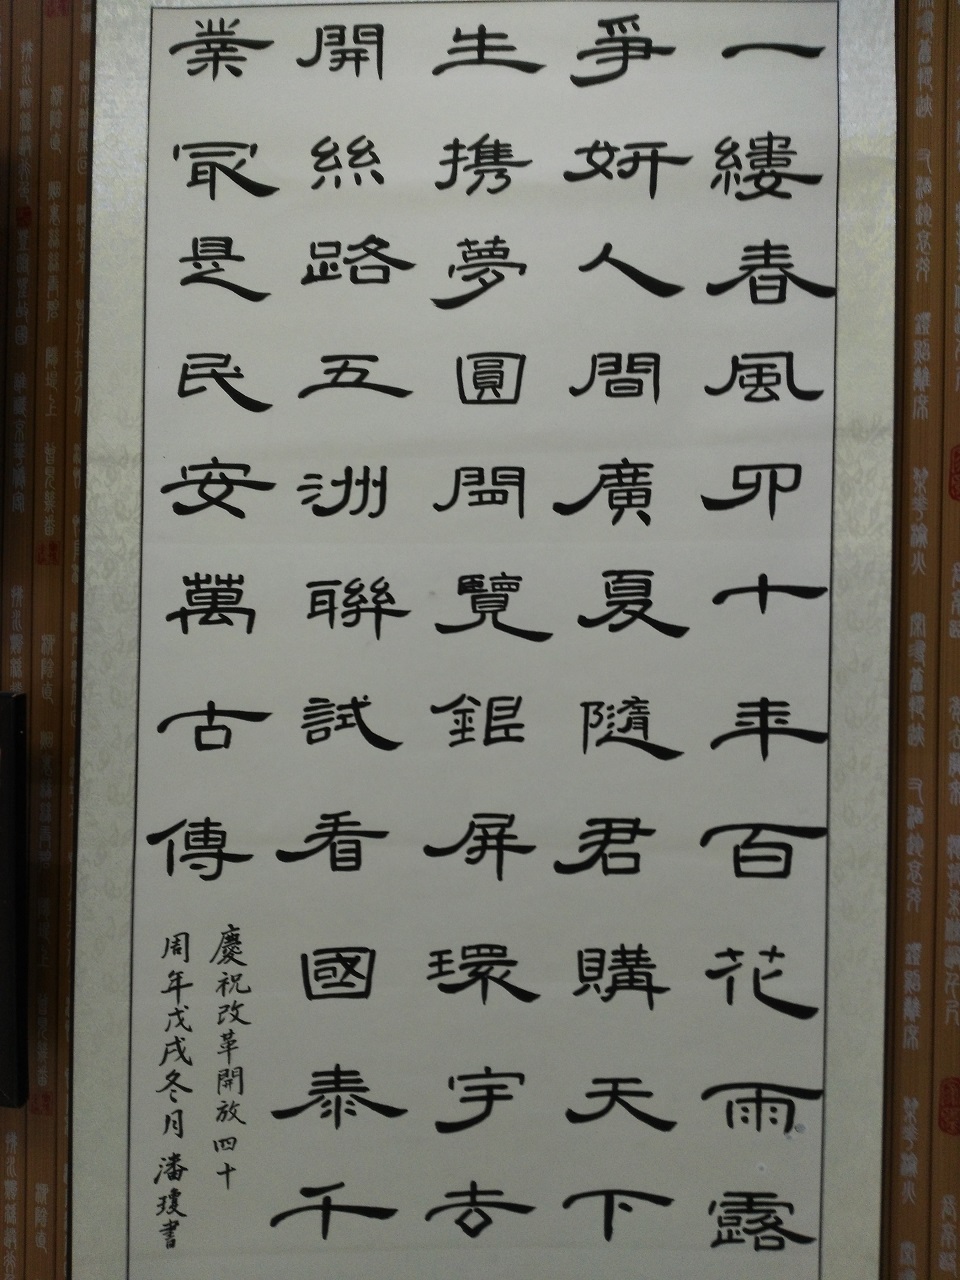 一縷春風卌十年百花雨露
爭妍人間廣夏隨君購天下
生携夢圓閩覽銀屏環宇去
開絲路五洲聯試看國泰千
業最是民安萬古傳
慶祝改革開放四十
周年戊戌冬月潘瓊書